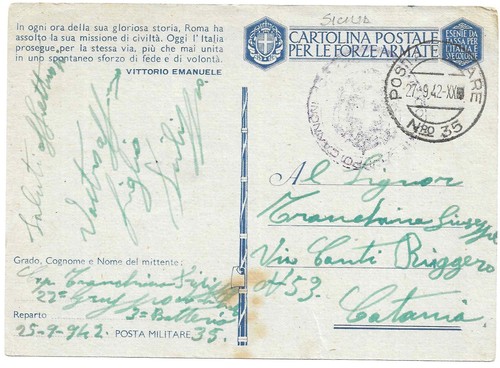 SICILIA
In ogni ora della sua gloriosa storia, Roma ha
assolto la sua missione di civiltà. Oggi l'Italia
prosegue per la stessa via, più che mai unita
in uno spontaneo sforzo di fede e di volontà.
VITTORIO EMANUELE
CARTOLINA POSTALE
PER LE FORZE ARMATE
ESENTE DA
TASSA PER
L'ITALIA E
27-9.42-XX
Nro 35
Saluti
Vostro
figlio
Al Signor
Tranchina Giuseppe
Via Conti Ruggero
N 53.
Catania
Grado, Cognome e Nome del mittente:
Tranchina
22º
3ª Batteria
Reparto
25-9-942.
POSTA MILITARE 35.